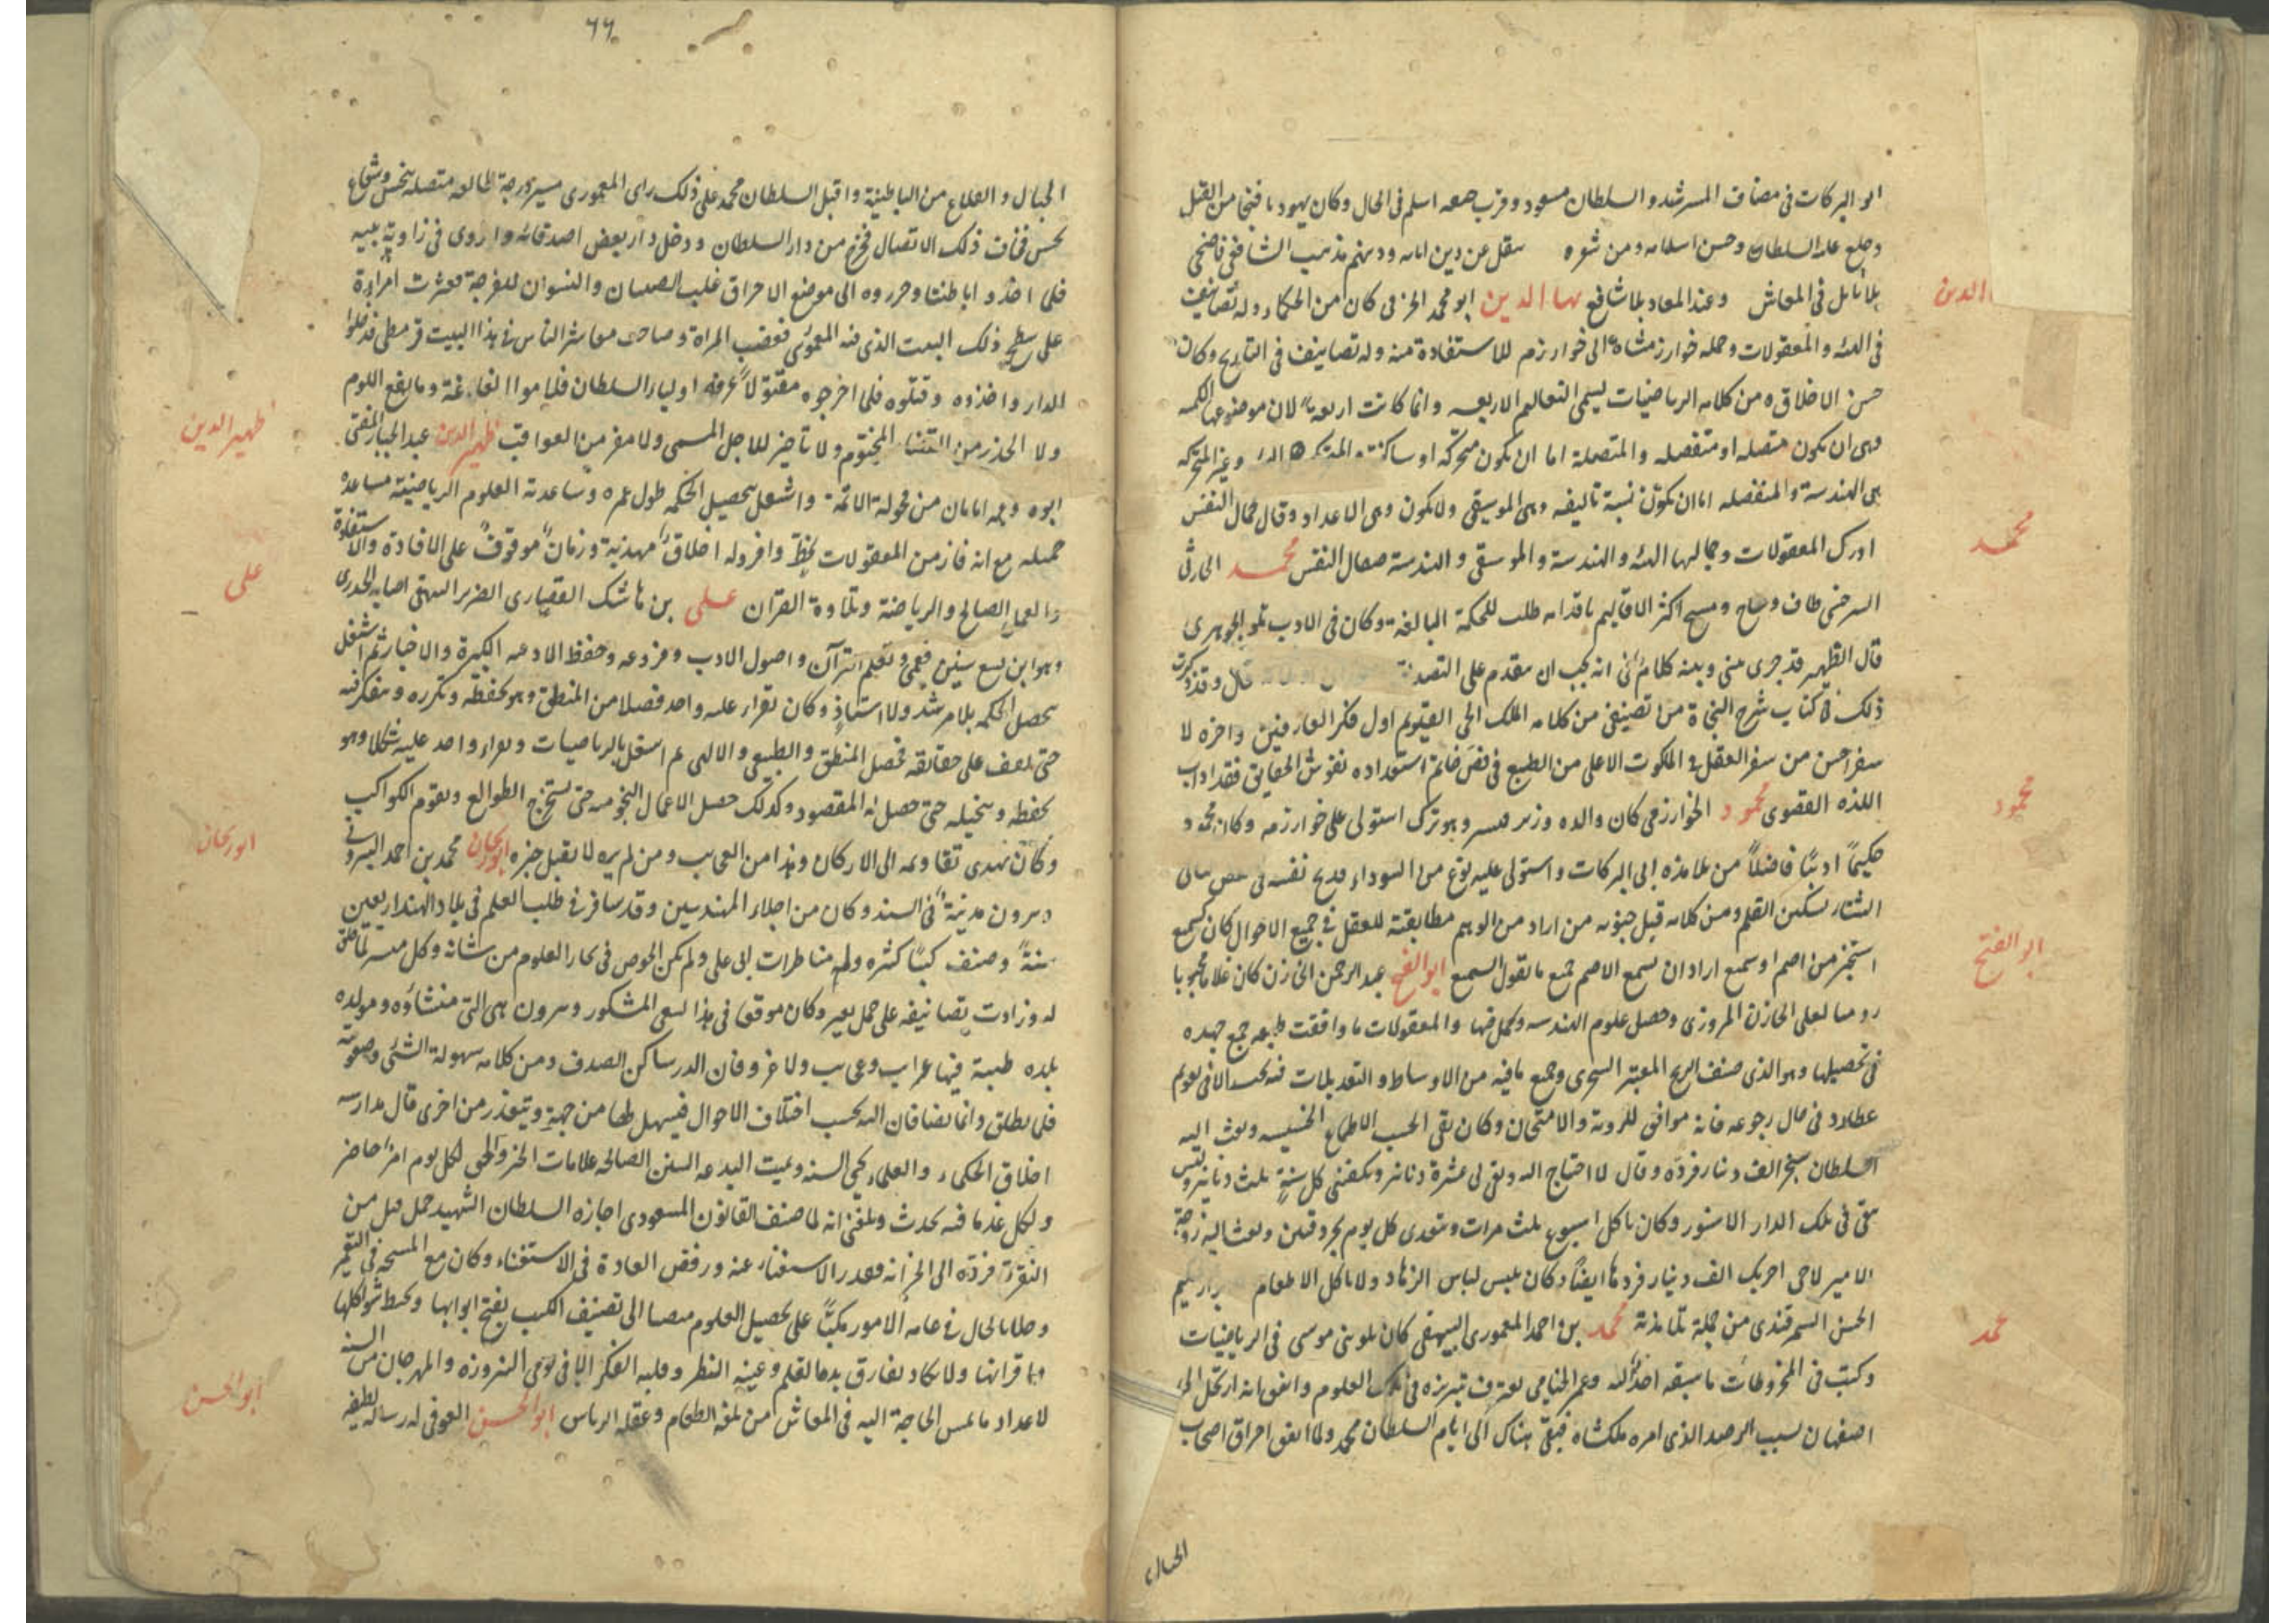 ابو البركات في مصاف المسترشد والسلطان مسعود وقرب حمعه اسلم في الحال وكان يهوديا فنجا من القتل
وخلع عليه السلطان وحسن اسلامه ومن شعره سقل عن دين ابايه ودينهم مذهب الشافعي فاضحى
بلا نايل في المعاش وعند المعاد بلا شافع بها الدين ابو محمد الخرقي كان من الحكماء وله تصانيف
الدين
في الهيئة والمعقولات وحمله خوارزمشاه الى خوارزم للاستفادة منه وله تصانيف في التاريخ وكان
حسن الاخلاق ومن كلامه الرياضيات يسمى التعاليم الاربعه وانما كانت اربعة لان موضوعها الكم
وهي ان يكون متصله او منفصله والمتصلة اما ان يكون متحركة او ساكنة المتحركة الهيئة وغير المتحركة
هي الهندسة والمنفصله اما ان يكون نسبة تاليفه وهي الموسيقى ولا يكون وهي الاعداد وقال كمال النفس
ادرك المعقولات وجمالها الهيئة والهندسة والموسيقى والهندسة صقال النفس محمد الحارثي
محمد
السرخسي طاف وساح ومسح اكثر الاقاليم باقدامه طلب للحكمة البالغة وكان في الادب تلو الجوهري
قال الظهير قد جرى بيني وبينه كلام في انه يجب ان يتقدم على التصديق قال وقد ذكرت
ذلك في كتاب شرح النجاة من تصنيفي من كلامه الملك الحي القيوم اول فكر العارفين واخره لا
سفر احسن من سفر العقل في الملكوت الاعلى من الطبع في فص خاتم استعداده نقوش الحقايق فقد اداب
اللذه القصوى محمود الخوارزمي كان والده وزير وهو ترك استولى على خوارزم وكان محمود
محمود
حكيما اديبا فاضلا من تلامذه ابي البركات واستولى عليه نوع من السوداء فذبح نفسه في بعض ليالي
الشتاء بسكين القلم ومن كلامه قبل جنونه من اراد من الوهم مطابقته للعقل في جميع الاحوال كان كسميع
استخبر من اصم او سميع اراد ان يسمع الاصم جميع ما يقول السميع ابو الفتح عبد الرحمن الخازن كان غلاما محبوبا
ابو الفتح
روميا لعلي الخازن المروزي وحصل علوم الهندسه وكمل فيها والمعقولات ما وافقت طبعه جمع جهده
في تحصيلها وهو الذي صنف الزيج المعتبر السنجري وجمع ما فيه من الاوساط والتعديلات الا في تقويم
عطارد في حال رجوعه فانه موافق للرؤية والامتحان وكان نقي الجيب الاطماع الخسيسه وبعث اليه
السلطان سنجر الف دينار فرده وقال لا احتاج اليه وبقي لي عشرة دنانير ويكفيني كل سنة ثلث دنانير وليس
بقي في تلك الدار الا سنور وكان ياكل اسبوع ثلث مرات ويتغدى كل يوم بجردقتين وبعث اليه زوجة
الامير لاجي اخر بك الف دينار فردها ايضا وكان يلبس لباس الزهاد ولا ياكل الا طعام
الحسن السمرقندي من جملة تلامذته محمد بن احمد المعموري البيهقي كان تلو بني موسى في الرياضيات
محمد
وكتب في المخروطات ما سبقه احد اليه وعمر الخيامي يعترف تبريزه في تلك العلوم واتفق انه ارتحل الى
اصفهان بسبب الرصد الذي امره ملكشاه فبقي هناك الى ايام السلطان محمد ولما اتفق احراق اصحاب
الجبال
٦٦
الجبال والقلاع من الباطنية واقبل السلطان محمد على ذلك راى المعموري مسير درجة طالعه متصله بنحس وشعاع
نحس فخاف ذلك الاتصال فخرج من دار السلطان ودخل دار بعض اصدقائه واروى في زاوية بيته
فلما اخذوا باطنيا وجروه الى موضع الاحراق غلب الصبيان والنسوان للفرجة فعثرت امراءة
على سطح ذلك البيت الذي فيه المعموري فغضبت المراة وصاحت معاشر الناس في هذا البيت قرمطي فدخلوا
الدار واخذوه وقتلوه فلما اخرجوه مقتولا عرفه اولياء السلطان فلياموا الغاغة وما ينفع اللوم
ولا الحذر من القضاء المختوم ولا تاخير للاجل المسمى ولا مفر من العواقب ظهير الدين عبد الجبار المفتي
ظهير الدين
ابوه وعمه امامان من فحولة الائمة واشتغل بتحصيل الحكمه طول عمره وساعدته العلوم الرياضية مساعده
جميله مع انه فاز من المعقولات بحظ وافر وله اخلاق مهذبة وزمان موقوف على الافادة والاستفادة
والعمل الصالح والرياضة وتلاوة القران علي بن ماشك القصاري الضرير البيهقي اصابه الجدري
علي
وهو ابن تسع سنين فعمي وتعلم القرآن واصول الادب وفروعه وحفظ الادعيه الكثيرة والاخبار ثم اشتغل
بتحصيل الحكمه بلا مرشد ولا استاذ وكان يقراء عليه واحد فصلا من المنطق وهو يحفظه ويكرره ويتفكر فيه
حتى يقف على حقايقه فحصل المنطق والطبيعي والالهي ثم اشتغل بالرياضيات ويقراء واحد عليه شكلا وهو
يحفظه ويتخيله حتى حصل له المقصود وكذلك حصل الاعمال النجوميه حتى يستخرج الطوالع ويقوم الكواكب
وكان يهدي تقاويمه الى الاركان وهذا من العجايب ومن لم يره لا يقبل خبره ابو ريحان محمد بن احمد البيروني
ابو ريحان
وبيرون مدينة في السند وكان من اجلاء المهندسين وقد سافر في طلب العلم في بلاد الهند اربعين
سنة وصنف كتبا كثيره وله مناظرات ابي علي ولم يكن الخوض في بحار العلوم من شانه وكل ميسر لما خلق
له وزادت تصانيفه على حمل بعير وكان موفقا في هذا السعي المشكور وبيرون هي التي منشاؤه ومولده
بلده طيبة فيها غرايب وعجايب ولا غرو فان الدر ساكن الصدف ومن كلامه سهولة الشئ وصعوبته
فلن يطلق وانما يضافان اليه بحسب اختلاف الاحوال فيسهل طها من جهة ويتعذر من اخرى قال مدارسه
اخلاق الحكماء والعلماء يحيي السنه ويميت البدعه السنن الصالحه علامات الخير والحق لكل يوم امر حاضر
ولكل غد ما فيه يحدث وبلغني انه لما صنف القانون المسعودي اجازه السلطان الشهيد حمل فيل من
النقرة فرده الى الخزانه بعذر الاستغناء عنه ورفض العادة في الاستغناء وكان مع
الحال في عامة الامور مكبا على تحصيل العلوم منصبا الى تصنيف الكتب يفتح ابوابها ويحيط شواكلها
ولا يكاد يفارق يده القلم وعينه النظر وقلبه الفكر الا في يومي النيروزه والمهرجان من السنه
لاعداد ما تمس الحاجة اليه في المعاش من بلغة الطعام وعقله الرياش ابو الحسن العوفي له رسالة لطيفه
ابو الحسن